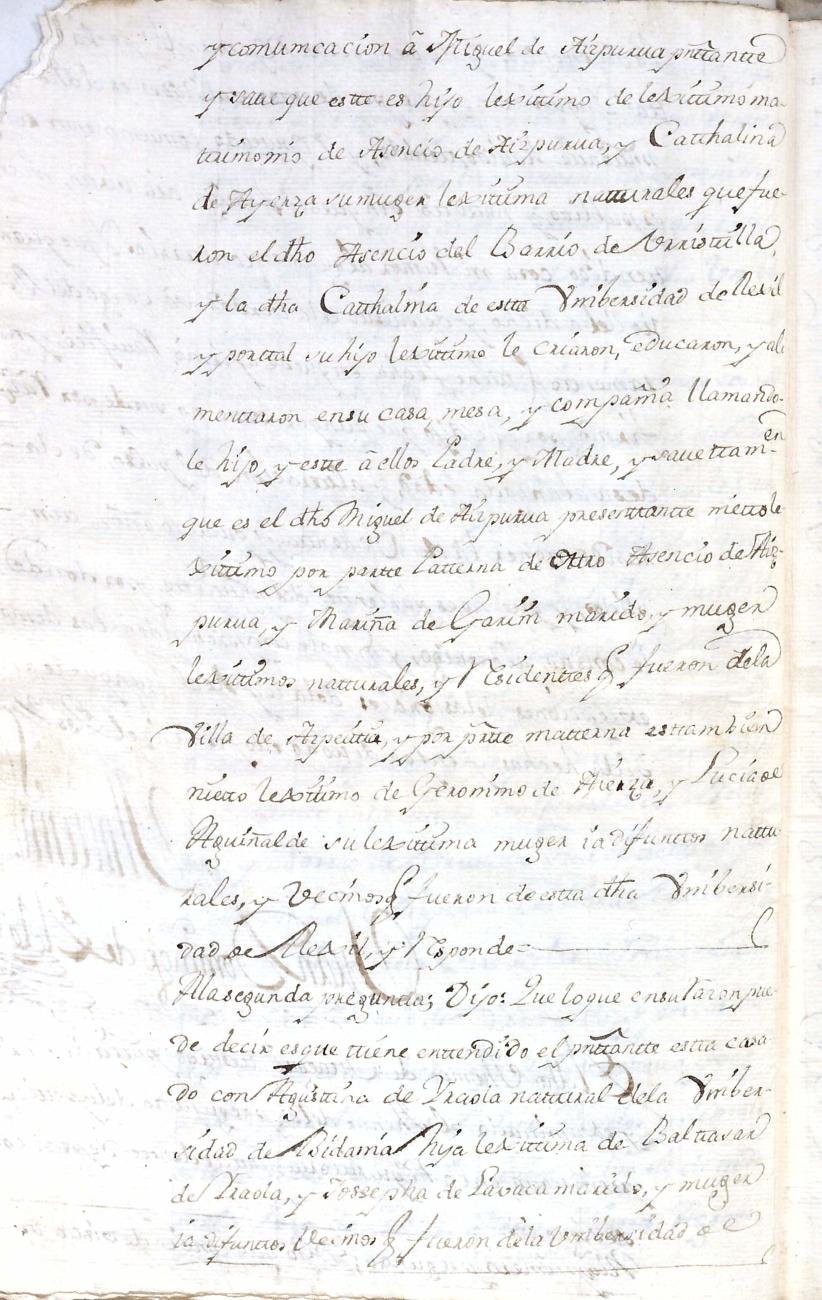 y comunicacion â Miguel de Aizpurua pñttantte
y save que estte es hijo lexittimo de lexittimo ma-
ttrimonio de Asencio de Aizpurua, y Catthalina
de Ayerza su muger lexittima natturales que fue-
ron el dho Asencio del Barrio de Urristtilla,
y la dha Catthalina de estta Unibersidad de Rexil
y por ttal su hijo lexittimo le criaron, educaron, y ali
menttaron en su casa, mesa, y compañia llamando-
le hijo, y estte â ellos Padre, y Madre, y save ttam-en
que es el dho Miguel de Aizpurua presenttantte nietto le
xittimo por partte Patterna de ottro Asencio de Aiz-
purua, y Mariña de Garin marido, y muger
lexittimos natturales, y Residenttes q fueron de la
Villa de Azpeittia, y por partte matterna es ttambien
nietto lexittimo de Geronimo de Aierza, y Lucia de
Aguiñalde su lexittima muger ia difunttos nattu
rales, y Vecinos q fueron de estta dha Unibersi-
dad de Rexil, y Responde=
A la segunda pregunta; Dijo: Que lo que en su raron pue-
de decir es que ttiene enttendido el pñttantte estta casa-
do con Agusttina de Yraola nattural de la Uniber-
sidad de Bidania hija lexittima de Balttasar
de Yraola, y Jossepha de Lavaca marido, y muger
ia difunttos Vecinos q fueron de la Unibersidad de